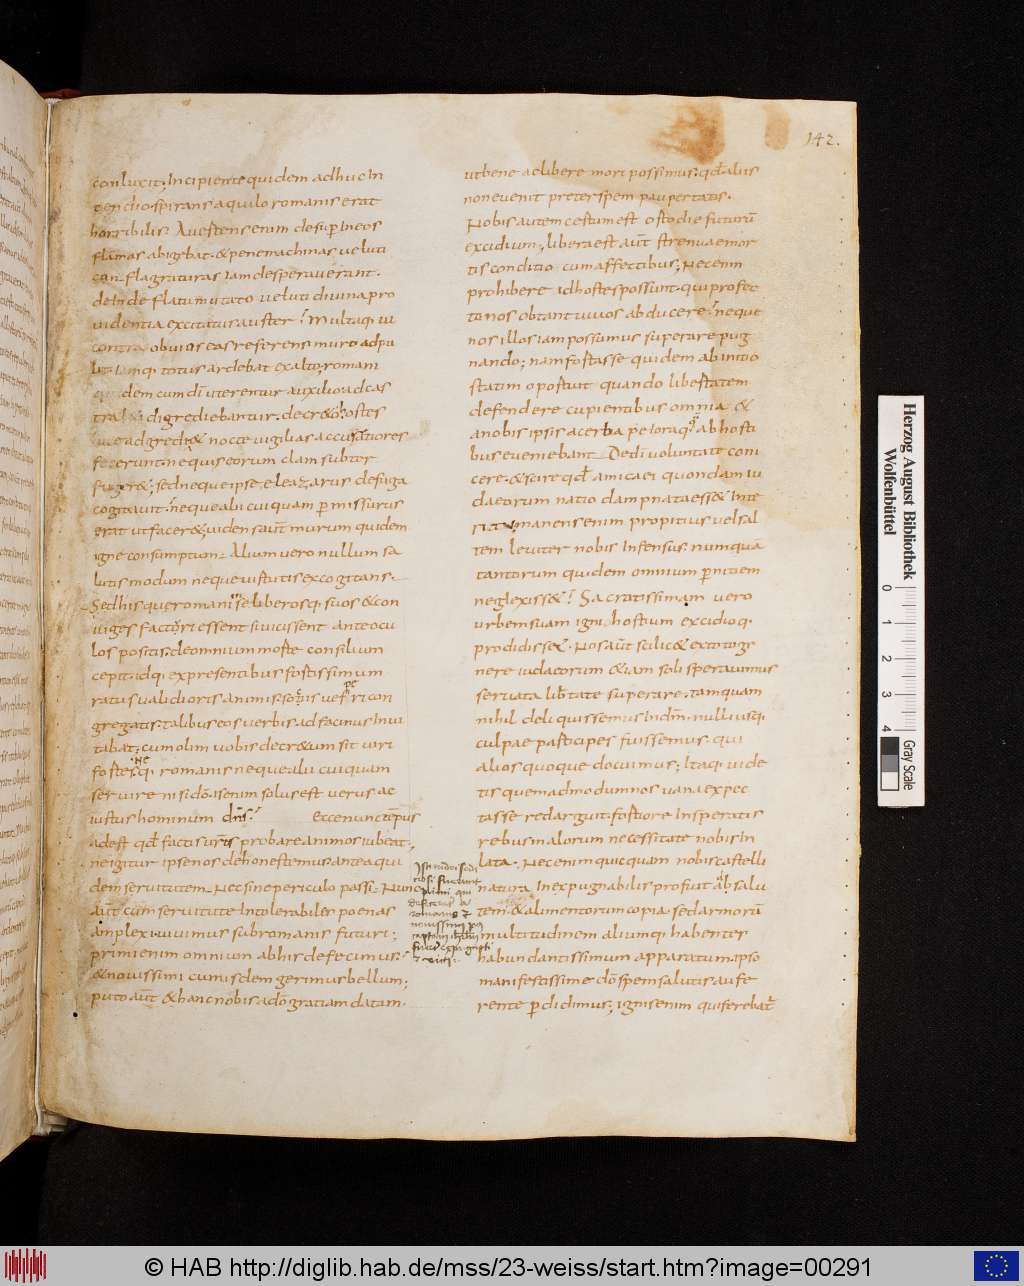 142.
conluxit. Incipiente quidem adhuc In
cendio spirans aquilo romanis erat
horribilis. Avertens enim desuper In eos
flāmas abigebat. & pene machinas veluti
conflagrituras iam desperaverant.
deinde flatu mutato veluti divina pro
videntia excitatur auster. Multaq; vi
contra obvius eas referens muro adpu
lit. Iamq; totus ardebat ex alto; romani
quidem cum dī uterentur auxilio ad cas
tra digrediebantur. decr&o hostes
adgredi & nocte vigilias accuratiores
fecerunt. ne quis eorum clam subter
fuger&; sed neque ipse eleazarus de fuga
cogitavit. neque alii cuiquam p missurus
erat ut facer&; viden saut murum quidem
igne consumptum. Alium vero nullum sa
lutis modum neque virtutis excogitans.
Sed his que romani se liberosq; suos & con
iuges facturi essent si vicissent ante ocu
los positis. de omnium morte consilium
cepit. idq; ex presentibus fortissimum
ratus validioris animi. sociis vesperi con
gregatis. talibus eos verbis ad facinus Invi
tabat; cum olim vobis decr&um sit viri
fortes. neq; romanis neque alii cuiquam
servire nisi dō. is enim solus est verus ac
iustus hominum dn̄s. Ecce nunc tempus
adest qd factis vr̄is probare animos iubeat.
ne igitur ipse nos dehonestemus. antea qui
dem servitutem. Nec sine periculo passi. Nunc
aut cum servitute Intolerabiles poenas
amplexi. vivimus sub romanis futuri;
primi enim omnium ab his defecimus.
& novissimi cum isdem gerimus bellum;
puto aut & hanc nobis a dō gratiam datam.
ut bene ac libere mori possimus. qd aliis
non evenit preter spem paupertatis.
Nobis autem certum est osto die futurū
excidium. libera est aut strenuae mor
tis conditio cum affectibus; Nec enim
prohibere id hostes possunt. qui profec
to nos obtant vivos abducere. neque
nos illos iam possumus superare pug
nando; nam fortasse quidem ab initio
statim oportuit quando libertatem
defendere cupientibus omnia &
a nobis ipsis acerba peioraq; ab hosti
bus eveniebant. Dedī voluntate coni
cere. & scire qd amica ei quondam iu
daeorum natio dampnata ess& Inte
ri tu. manens enim propitius vel sal
tem leviter nobis Infensus. numquā
tantorum quidem omnium pniciem
neglexiss&. Sacratissimam vero
urbem suam igni hostium excidioq;
prodidiss&. Nos aut scilic& ex toto ge
nere iudaeorum &iam soli speravimus
servata libtate superare. tamquam
nihil deliquissemus In dm̄. nulliusq;
culpae participes fuissemus. qui
alios quoque docuimus; Itaq; vide
tis quemadmodum nos vana expec
tasse redarguit. fortiore Insperatis
rebus malorum necessitate nobis In
lata. Nec enim quicquam nobis castelli
natura Inexpugnabilis profuit ab salu
tem. & alimentorum copia sed armorū
multitudinem aliumq; habenter
habundantissimum apparatum. ipso
manifestissime dō spem salutis aufe
rente pdidimus; ignis enim qui ferebat
Herzog August Bibliothek
Wolfenbüttel
0 1 2 3 4
Gray Scale
© HAB http://diglib.hab.de/mss/23-weiss/start.htm?image=00291